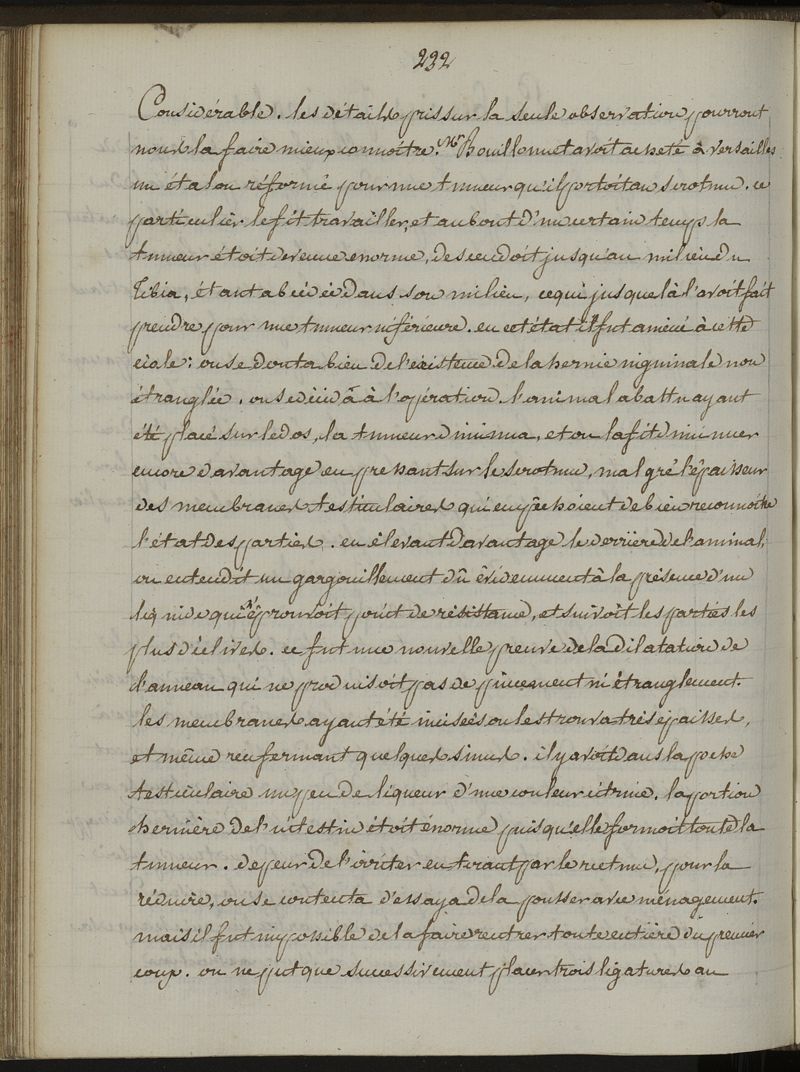 232
Considérable. les détails pris sur la seule observation pourront
nous la faire mieux connoitre. Mr Bouillonnet avoit acheté à versailles
un étalon réformé pour une tumeur qu'il portoit au scrotum. ce
particulier le fit travailler, et au bout d'un certain temps la
tumeur étoit devenue enorme, descendoit jusqu'au milieu du
Tibia, étant abcédée dans son milieu, ce qui jusque là l'avoit fait
prendre pour une tumeur inférieure. en cet état il fut amené à cette
ecole: on se douta bien de l'existence de la hernie inguinale non
étranglée. on se décida à l'opération. l'animal abattu ayant
été placé sur le dos, la tumeur diminua, et on la fit diminuer
encore davantage en pressant sur le scrotum, malgré l'épaisseur
des membranes testiculaires qui empêchoient de bien reconnoitre
l'état des parties. en élevant davantage le derrière de l'animal,
on entendit un gargouillement dû évidemment à la présence d'un
liquide qui n'éprouvoit point de résistance, et suivoit les parties les
plus déclives. ce fut une nouvelle preuve de la dilatation de
l'anneau qui ne produisoit pas de pincement ni étranglement.
les membranes ayant été incisées on les trouva très épaisses,
et même renfermant quelques sinus. il y avoit dans la poche
testiculaire un peu de liqueur d'une couleur citrine. la portion
herniére de l'intestin étoit énorme puisqu'elle formoit toute la
tumeur. de peur de l'irriter en tirant par le rectum, pour la
réduire, on se contenta d'essaya de la pousser avec ménagement.
mais il fut impossible de la faire rentrer toute entière du premier
coup. on ne put que successivement placer trois ligatures au